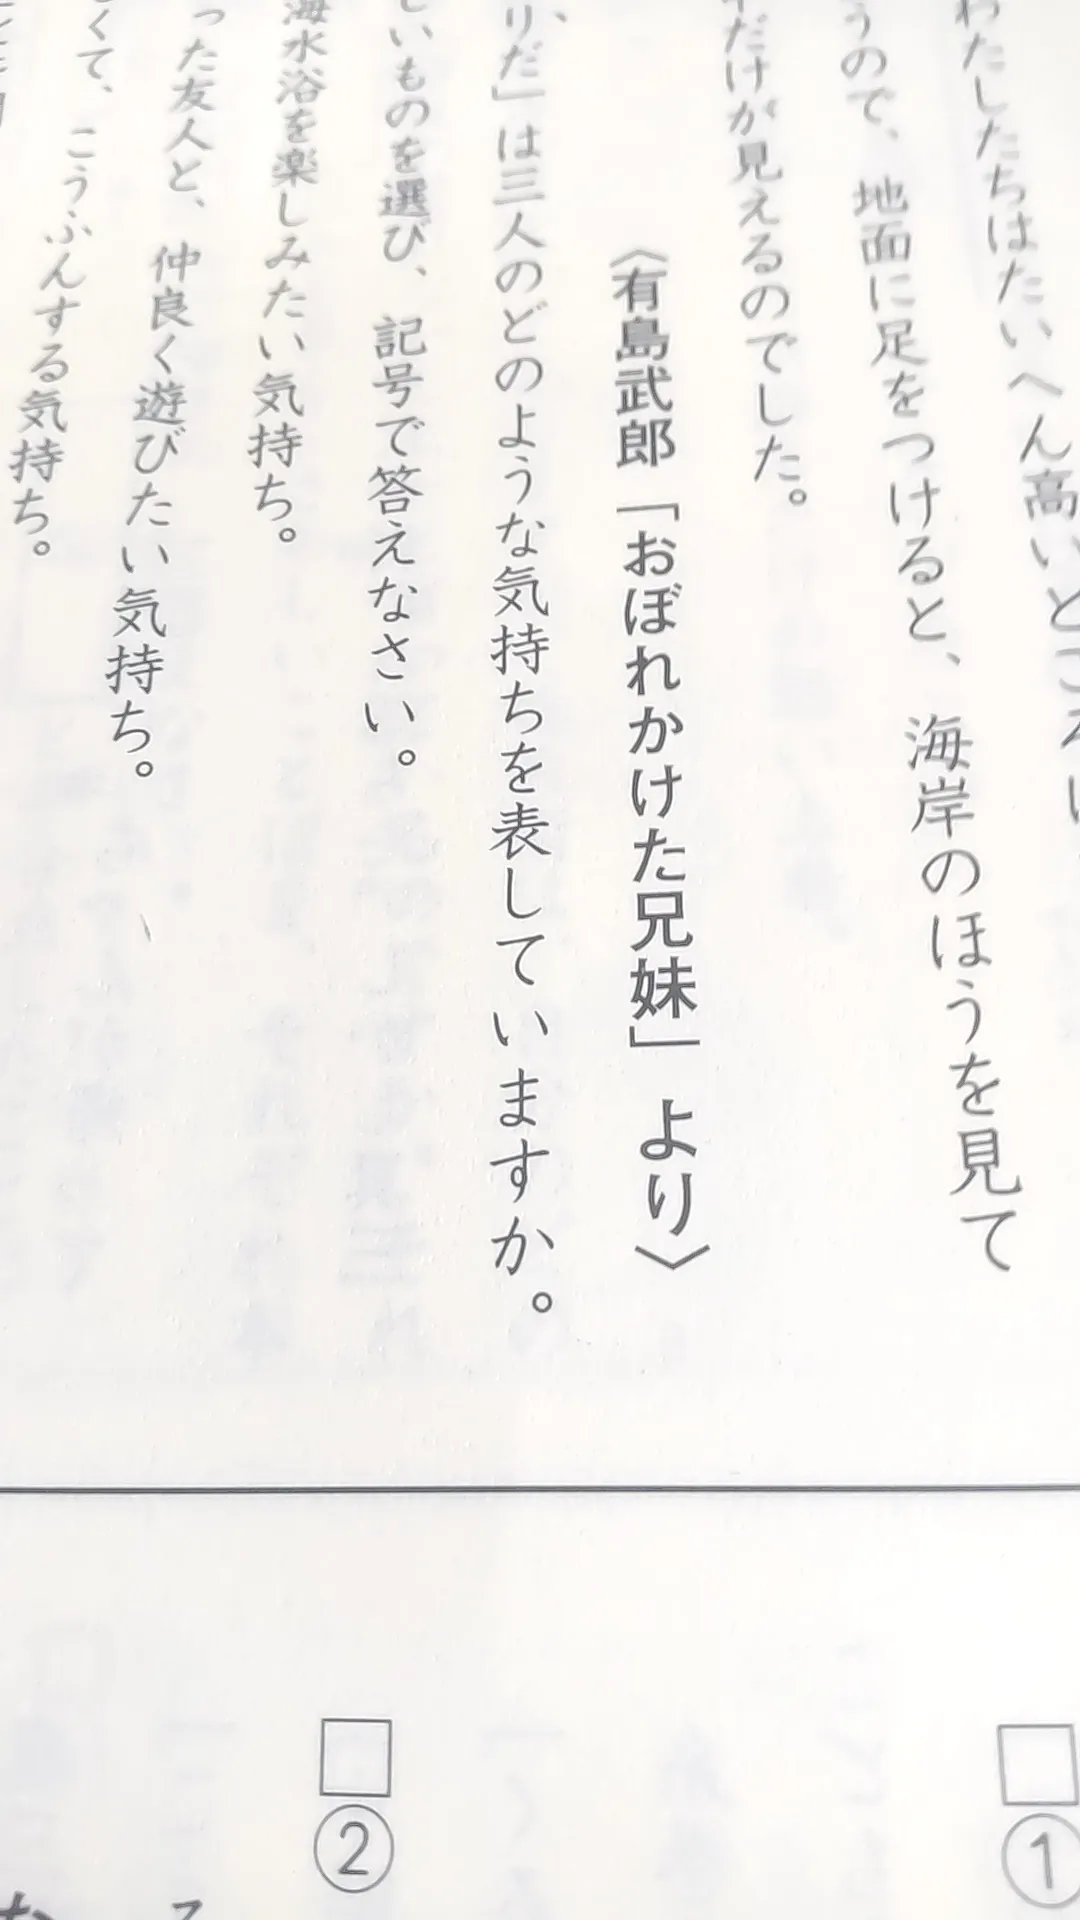 わたしたちはたいへん高いところに
うので、地面に足をつけると、海岸のほうを見て
だけが見えるのでした。
〈有島武郎「おぼれかけた兄妹」より〉
りだ」は三人のどのような気持ちを表していますか。
しいものを選び、記号で答えなさい。
海水浴を楽しみたい気持ち。
った友人と、仲良く遊びたい気持ち。
くて、こうふんする気持ち。
□①
□②